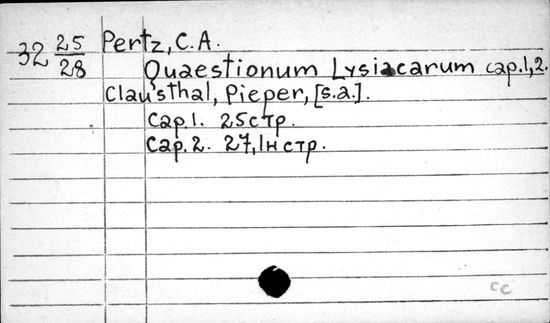 32 25/28 Pertz, C.A.
Quaestionum Lysiacarum cap.1,2.
Clausthal, Pieper, [s.a.].
Cap.1. 25стр.
Cap.2. 27,1н стр.
cc